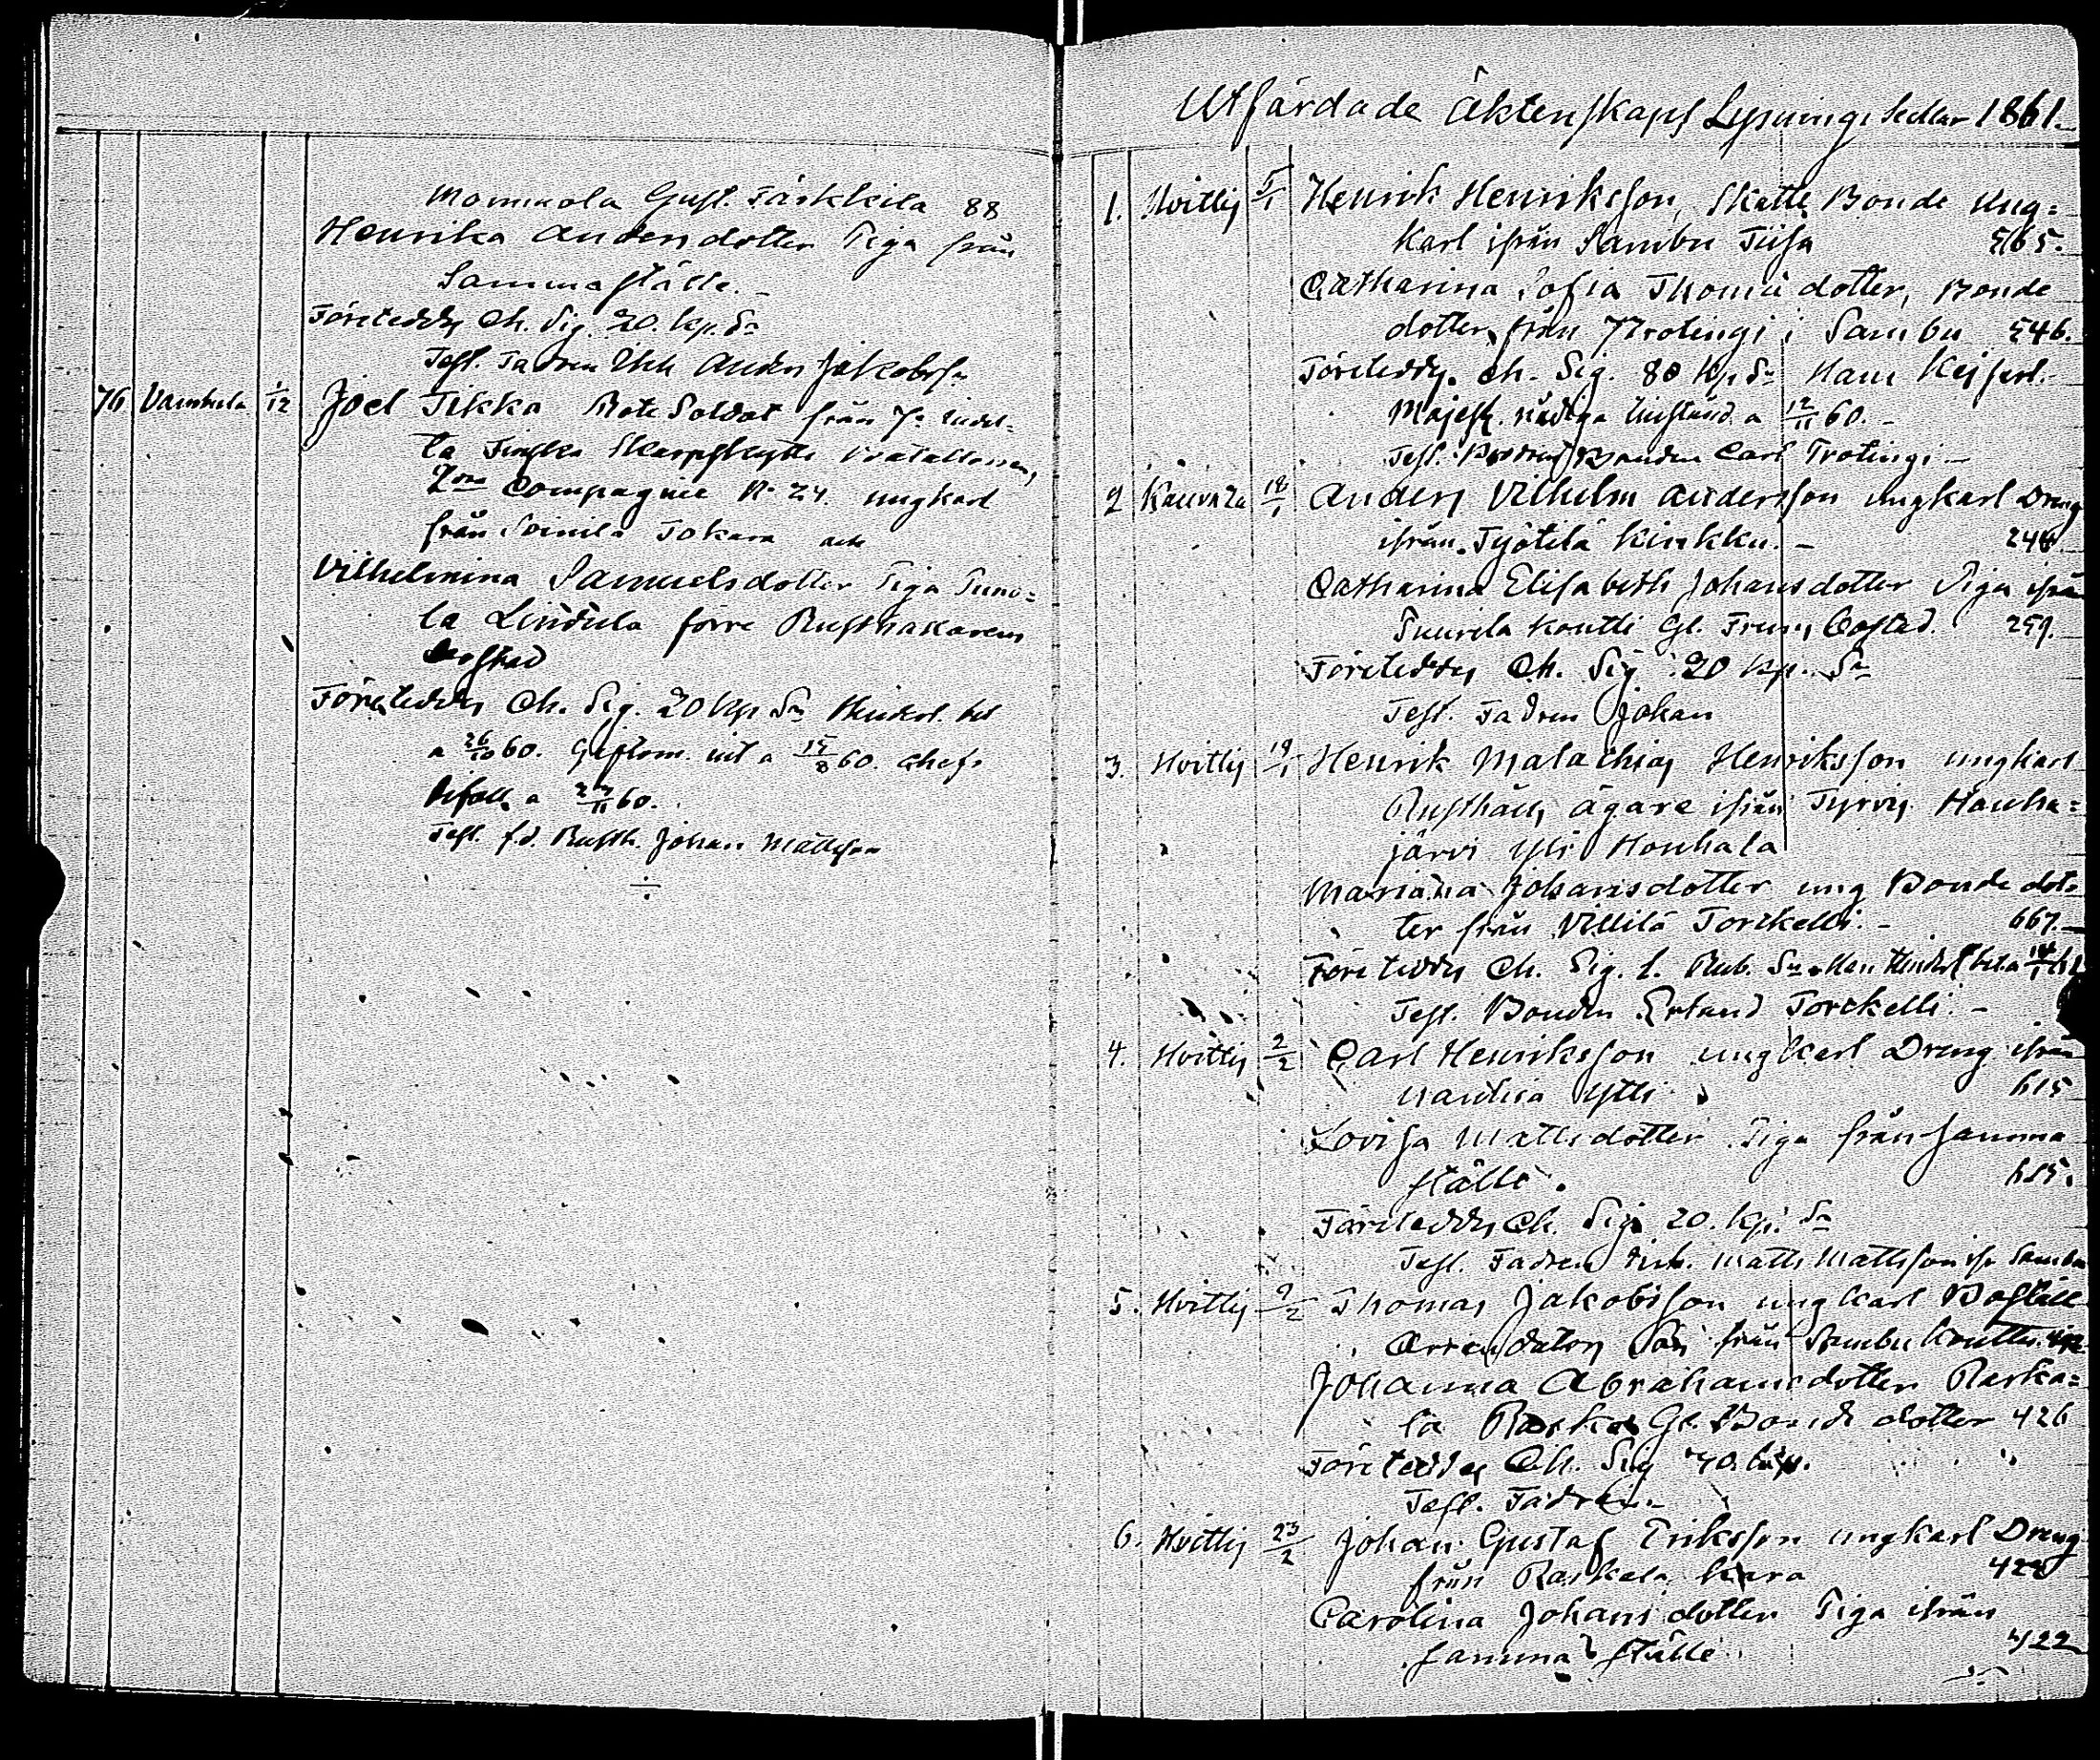 Mommola Gust. Järkkilä 88
Henrika Andersdotter Piga från
Samma ställe.
Företeddes Ch. Sig. 20. kp. Sr
Test. Fadren Anders Jakobss.
76 Vamhula 1/12 Joel Tikka Rote Soldat från indel-
ta Finska Skarpskytte Bataillonen,
2dra Compagnie N. 24. ungkarl
från Soinila Tokara och
Vilhelmina Samuelsdotter Piga Suno-
la Lindula förre Rusthållarens
Företeddes Ch. Sig. 20 kp Sr Hindersl. bet
a 26/10 60. Giftom. int a 15/8 60. Chefs
bifall a 11 60.
Test. f.d. Rusth. Johan Mattsson
Utfärdade Äktenskaps Lysnings Sedlar 1861.
1. Hvittis 5/1 Henrik Henriksson, Skatte Bonde Ung-
karl ifrån Sambu Tiisa 565.
Catharina Sofia Thomasdotter, Bonde
dotter, från Trotingi i Sambu 546.
Företeddes Ch. Sig. 80 kp. Sr Hans Kejserl.
Majest. nådiga tillstånd a 12/11 60.
Test. Brodren Bonden Carl Trotingi
2 Kauvaza 18/1 Anders Vilhelm Andersson ungkarl Dreng
ifrån Työtilä Kinkku. 246.
Catharina Elisabeth Johansdotter Piga ifrån
Suurila Koutti Gl. 259.
Företeddes Ch. Sig. 20 kp. Sr
Test. Fadren Johan
3. Hvittis 19/1 Henrik Malachias Henriksson ungkarl
Rusthålls ägare ifrån Tyrvis Houha-
järvi Yli Houhala
Mariana Johansdotter ung Bonde dot-
ter från Villilä Torckelli. 667.
Företeddes Ch. Sig. 1. Rub. Sr Hindersl bet. a
Test. Bonden Erland Torckelli.
4. Hvittis 2/2 Carl Henriksson ungkarl Dreng ifrån
Nanhia Ytti 615
Lovisa Mattsdotter Piga från samma
ställe. 615.
Företeddes Ch. Sig. 20. kp. Sr
Test. Fadren Matts Mattsson ifr Sambu
5. Hvittis 9/2 Thomas Jakobsson ungkarl Boställs
Arrendators Son från Sambu Koutti
Johanna Abrahamsdotter Raska-
la Raska Gl. Bonde dotter 426
Företeddes Ch. Sig 40. kp.
Test. Fadren.
6. Hvittis 23/2 Johan Gustaf Eriksson ungkarl Dreng
från Raskala Kara 422
Carolina Johansdotter Piga ifrån
samma ställe 422